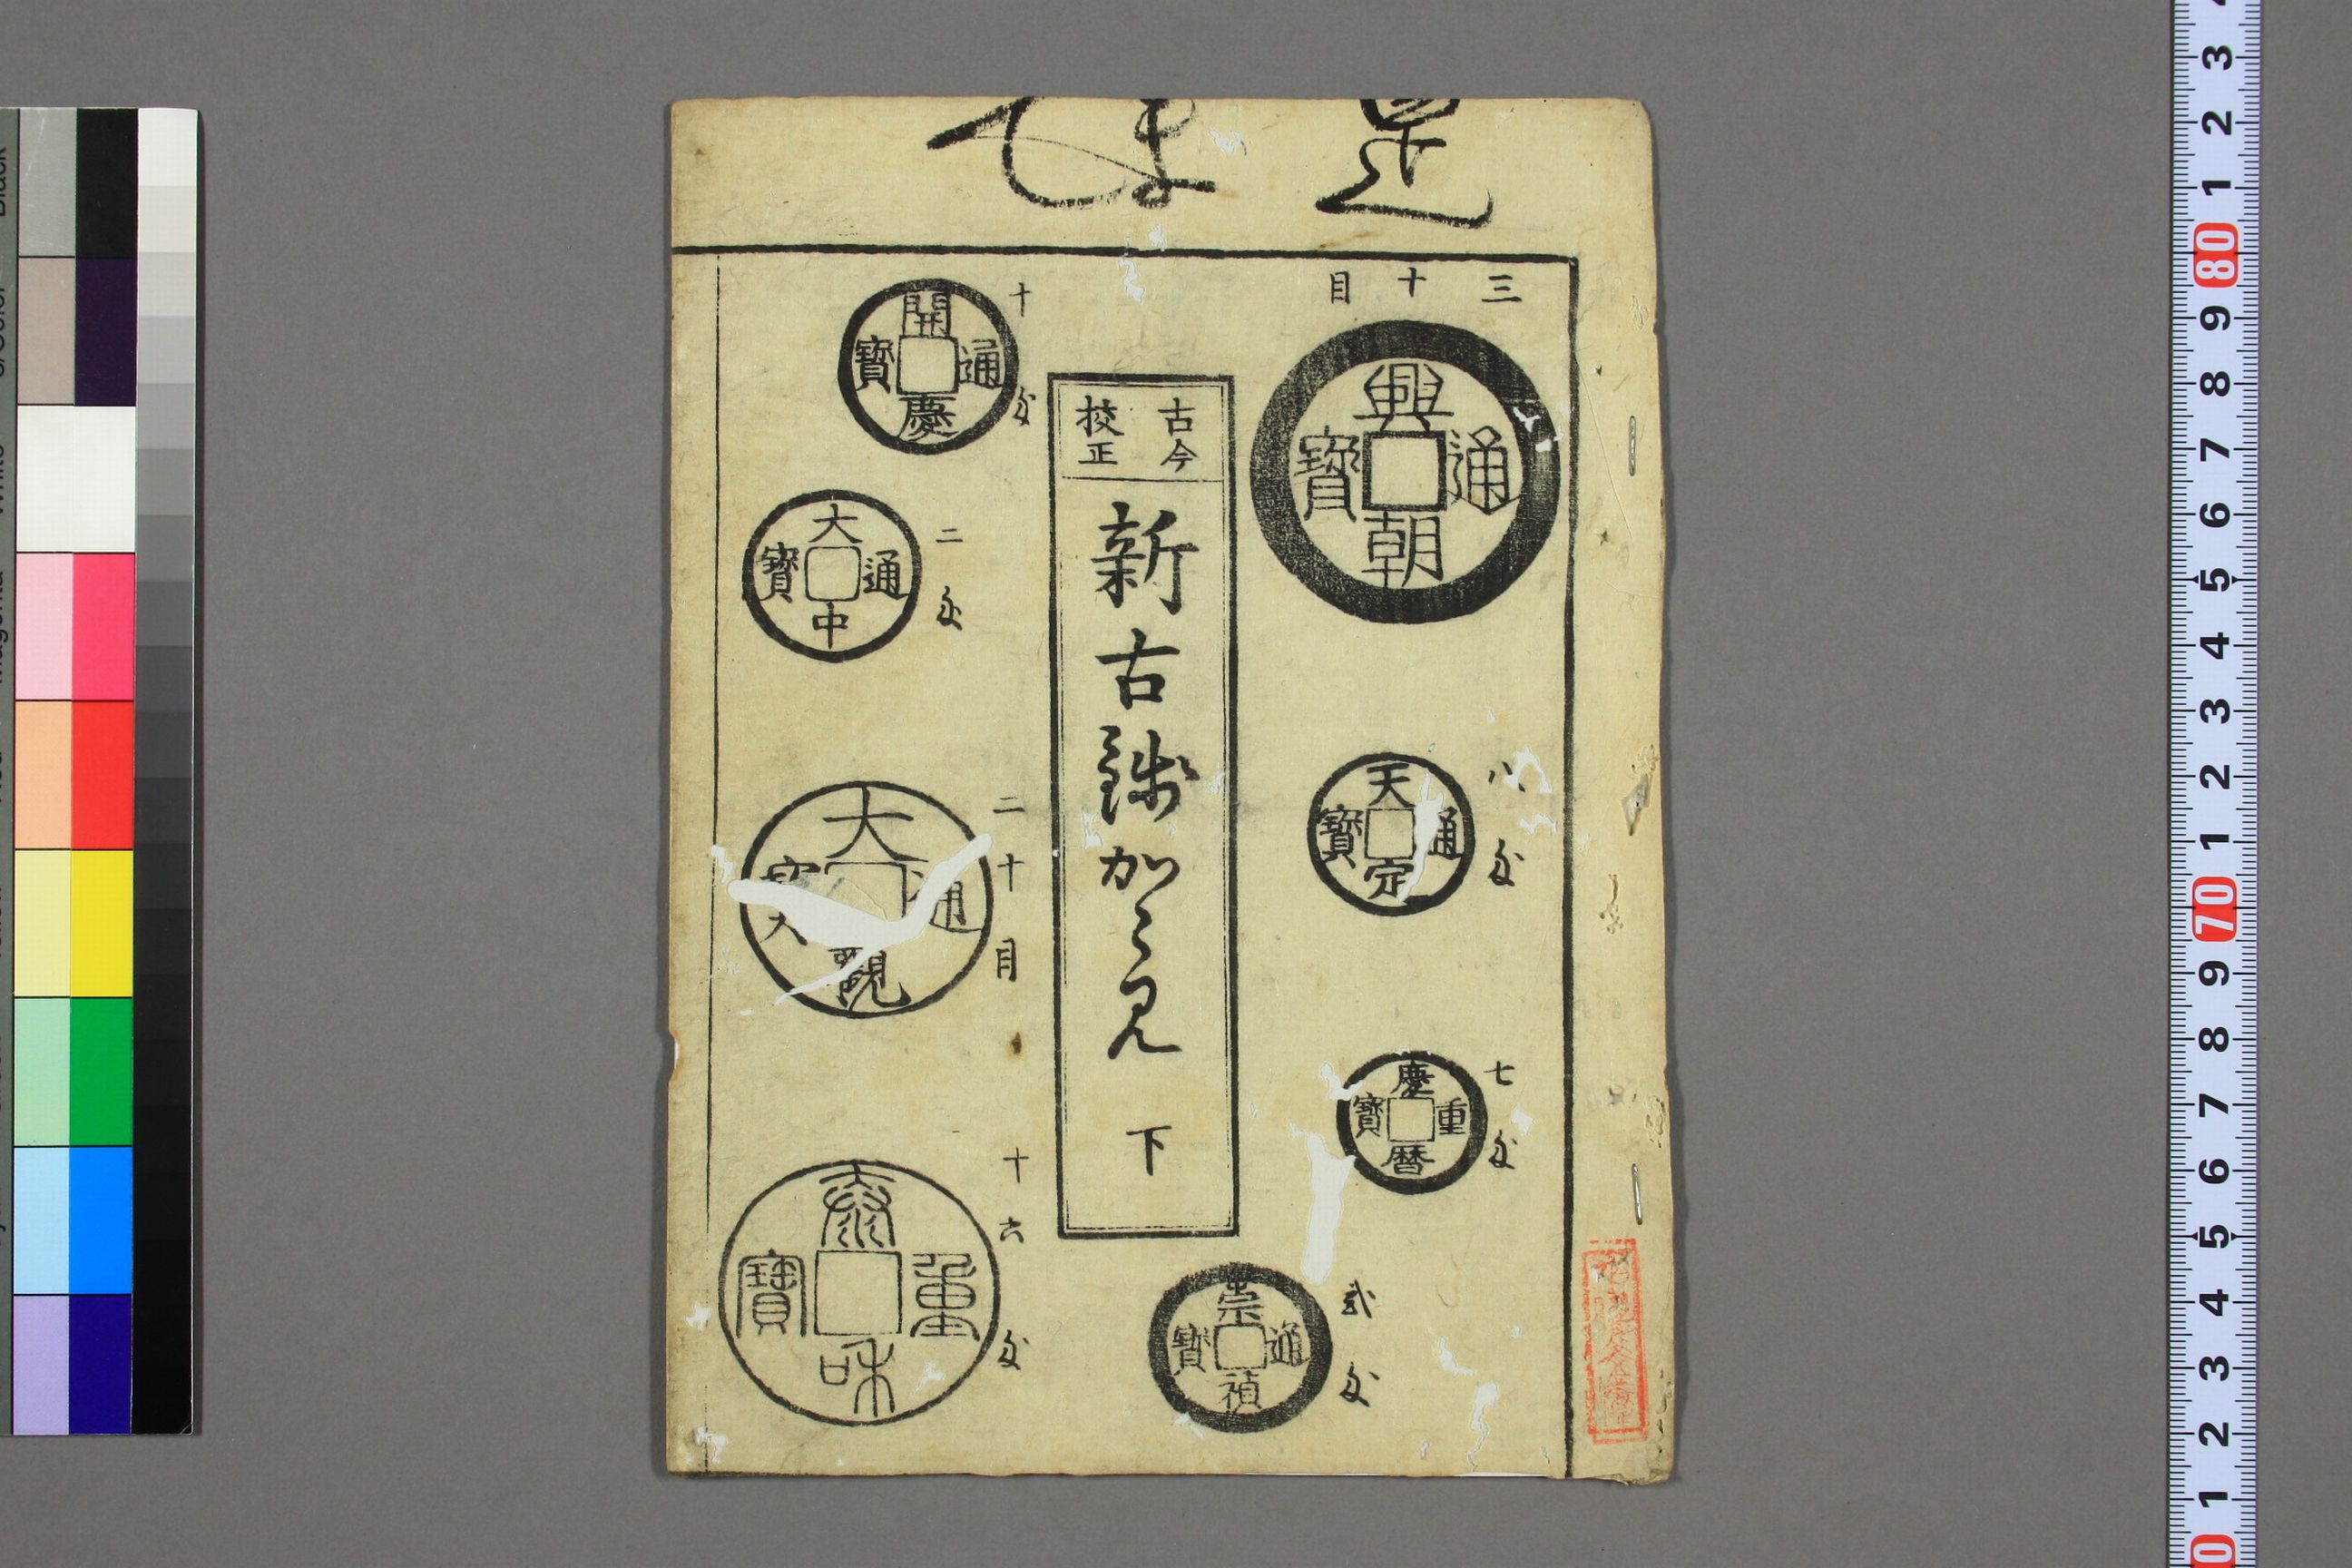 是
まて
三十目
興朝通寶
八匁
天定通寶
七匁
慶曆重寶
貳匁
崇禎通寶
古今
校正
新古銭かゝ見 下
十匁
開慶通寶
二匁
大中通寶
二十目
大觀通寶
十六匁
泰和重寶
3
2
1
80
9
8
7
6
5
4
3
2
1
70
9
8
7
6
5
4
3
2
1
0